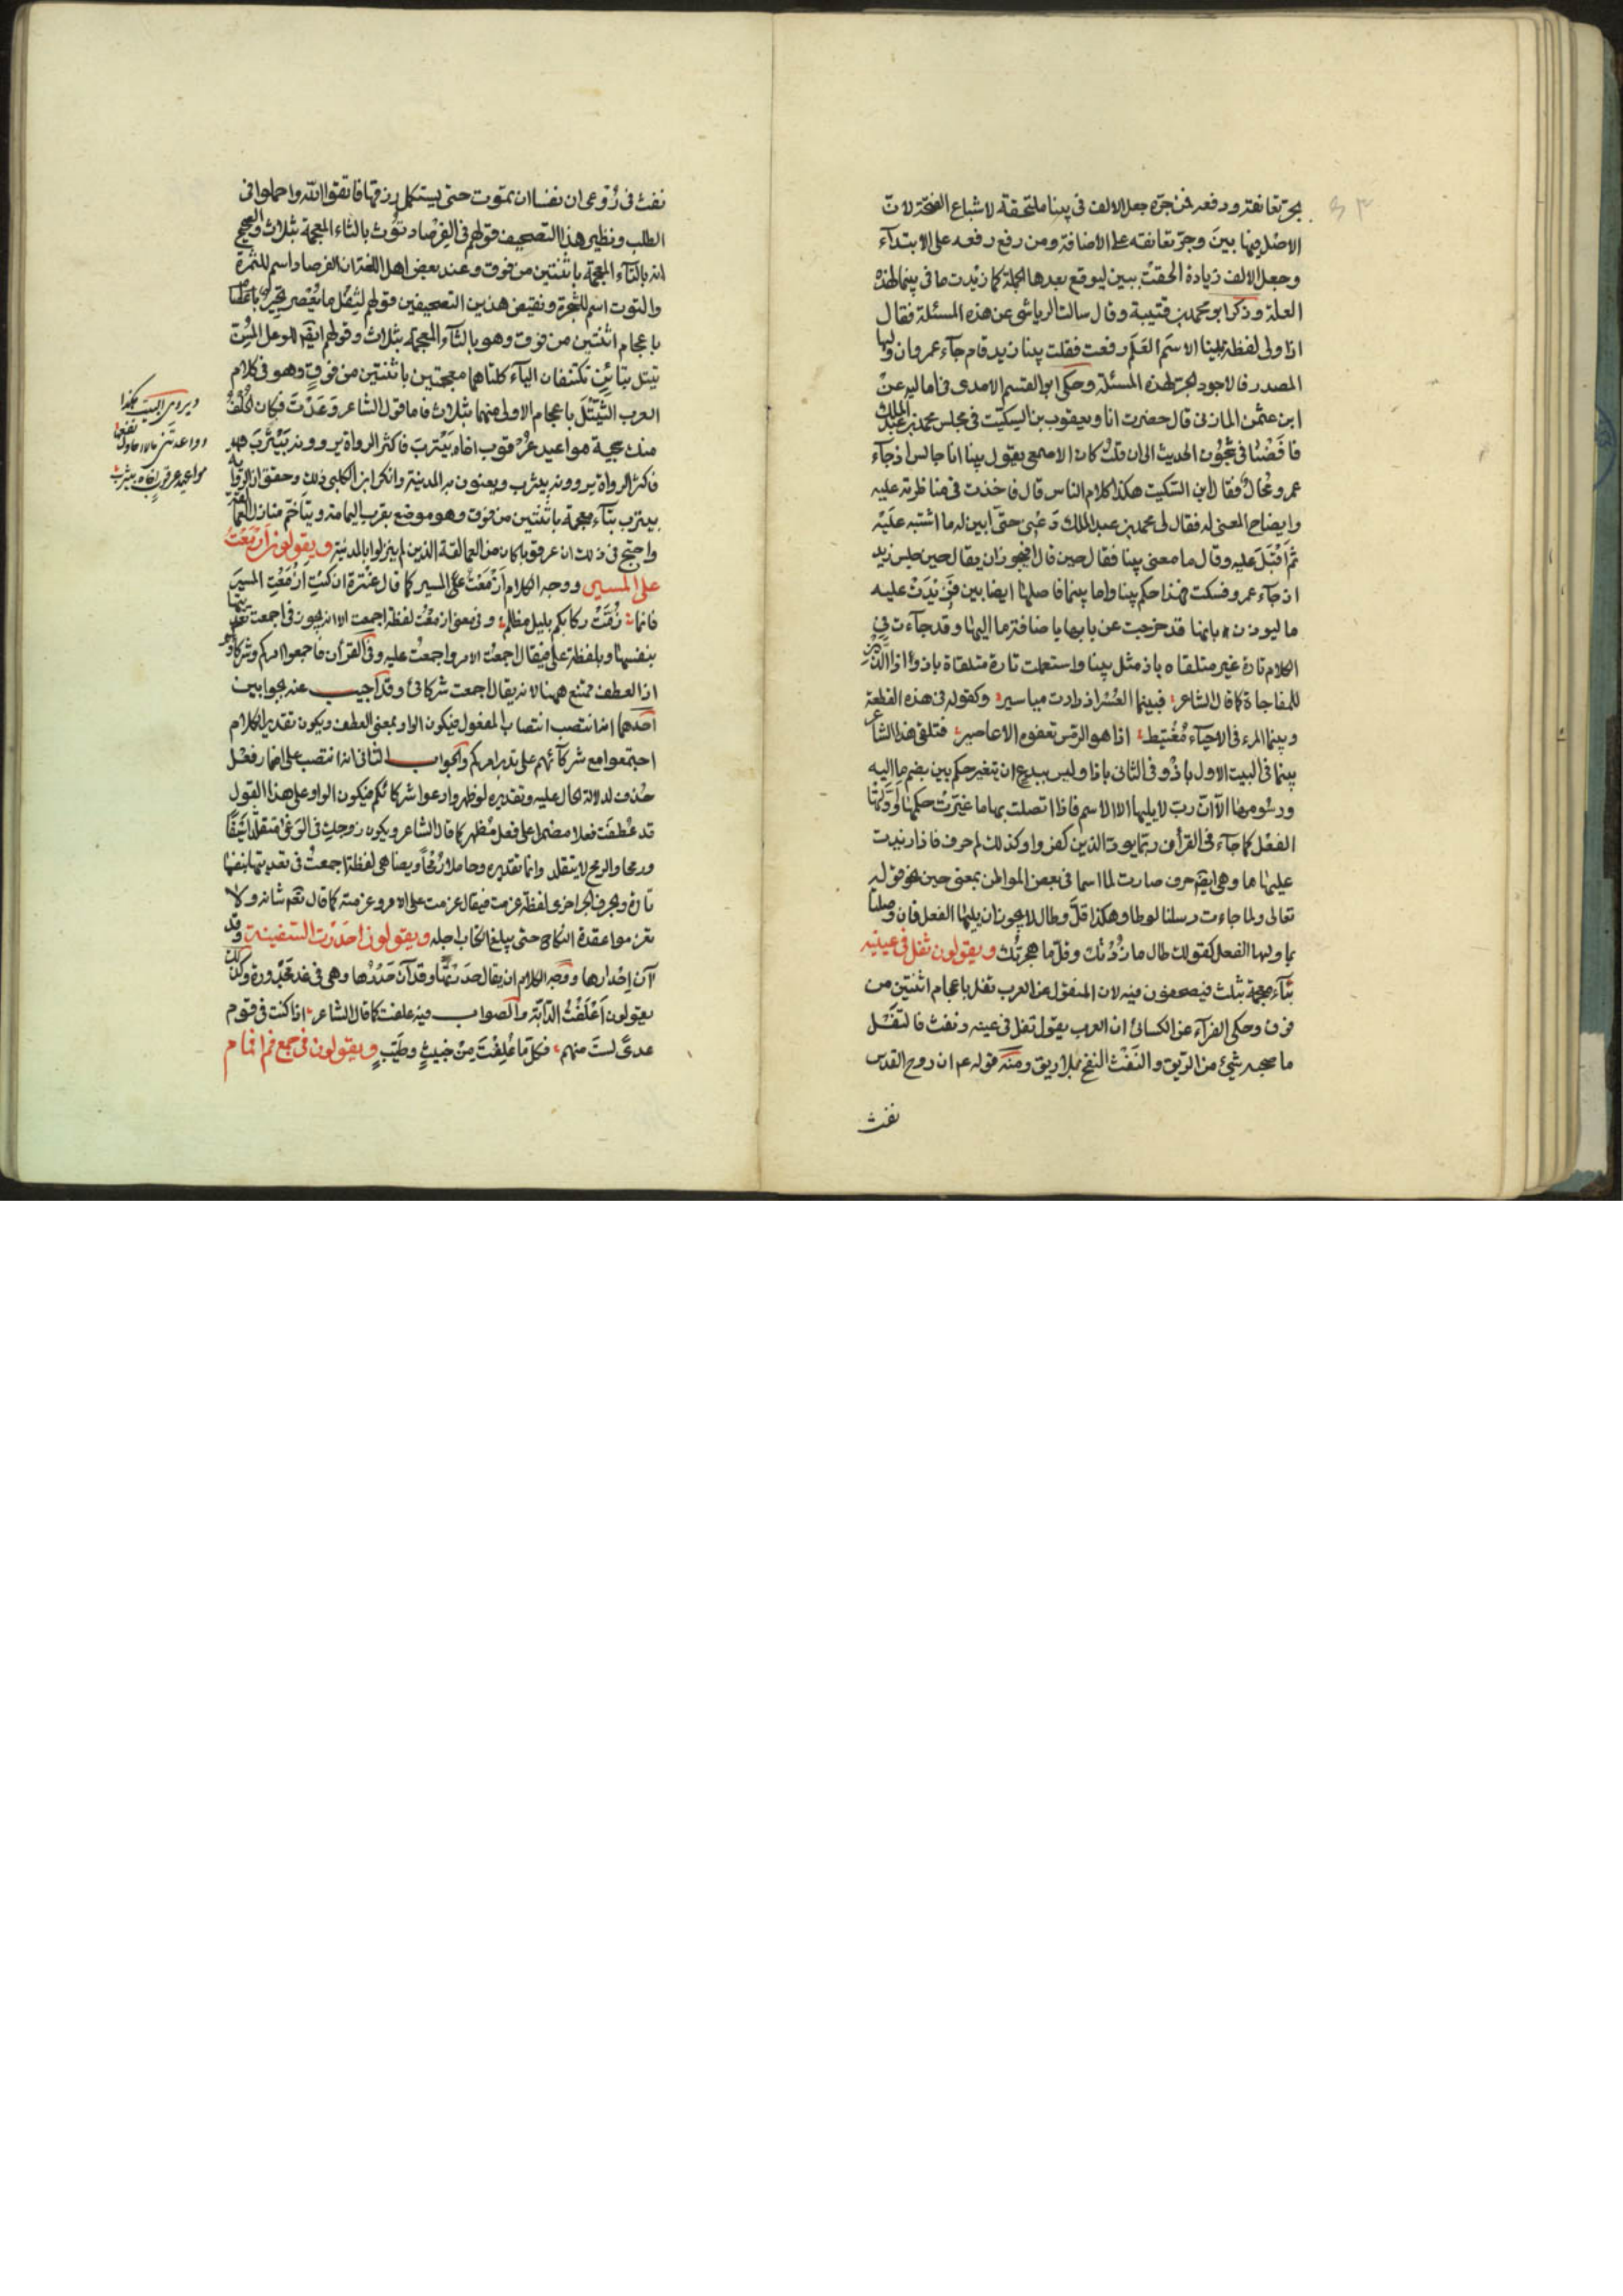 بجر تعانقه ورفعه فمن جره جعل الالف فى بينا ملتحقة لاشباع الفتحة لان
الاصل فيها بين وجر تعانقه على الاضافة ومن رفع رفعه على الابتدآء
وجعل الالف زيادة الحقت ببين ليوقع بعدها الجملة كما زيدت ما فى بينما لهذه
العلة وذكر ابو محمد بن قتيبة وقال سالت الرياشى عن هذه المسئلة فقال
اذا ولى لفظة بينا الاسم العلم رفعت فقلت بينا زيد قام جآء عمرو وان وليها
المصدر فالاجود الجر لهذه المسئلة وحكى ابو القسم الامدى فى اماليه عن
ابن عثمن المازنى قال حضرت انا ويعقوب بن السكيت فى مجلس محمد بن عبد الملك
فافضنا فى شجون الحديث الى ان قلت كان الاصمعى يقول بينا انا جالس اذ جآء
عمرو محال فقال ابن السكيت هكذا كلام الناس قال فاخذت فى مناظرته عليه
وايضاح المعنى له فقال لى محمد بن عبد الملك دعنى حتى ابين له ما اشتبه عليه
ثم اقبل عليه وقال ما معنى بينا فقال حين قال افيجوز ان يقال حين جلس زيد
اذ جآء عمرو فسكت فهذا حكم بينا واما بينما فاصلها ايضا بين فزيدت عليه
ما ليوذن بانها قد خرجت عن بابها باضافة ما اليها وقد جآءت فى
الكلام تارة غير متلقاه باذ مثل بينا واستعملت تارة متلقاة باذ واذا اللذين
للمفاجاة كما قال الشاعر فبينما العسر اذ دارت مياسير وكقوله فى هذه القطعة
وبينما المرء فى الاحيآء مغتبط اذا هو الرمس تعفوه الاعاصير فتلقى هذا الشاعر
بينما فى البيت الاول باذ وفى الثانى باذا وليس ببدع ان يتغير حكم بين بضم ما اليه
الا ان رب لا يليها الا الاسم فاذا اتصلت بها ما غيرت حكمها واولتها
الفعل كما جآء فى القرأن ربما يود الذين كفروا وكذلك لم حرف فاذا زيدت
عليها ما وهى ايضا حرف صارت لما اسما فى بعض المواطن بمعنى حين نحو قوله
تعالى ولما جاءت رسلنا لوطا وهكذا قل وطال لا يجوز ان يليها الفعل فان وصلتا
بما وليها الفعل كقولك طال ما زرتك وقل ما هجرتك ويقولون ثفل فى عينيه
بثآء معجمة بثلث فيصحفون فيه لان المنقول عن العرب تفل باعجام اثنتين من
فوق وحكى الفرآء عن الكسائى ان العرب يقول تفل فى عينه ونفث فالتفل
ما صحبه شيئ من الريق والنفث النفخ بلا ريق ومنه قوله عم ان روح القدس
نفث
نفث فى روعى ان نفسا ان تموت حتى يستكمل رزقها فاتقوا الله واجملوا فى
الطلب ونظير هذا التصحيف قولهم فى الفرصاد توث بالثاء المعجمة بثلاث والصحيح
انه بالتآء المعجمة باثنتين من فوق وعند بعض اهل اللغة ان الفرصاد اسم للثمرة
والتوت اسم للشجرة ونقيض هذين التصحيفين قولهم لثفل ما يعصر
باعجام اثنتين من فوق وهو بالثآء المعجمة بثلاث وقولهم ايضا للوعل المسن
تيتل بتائين تكتنفان اليآء كلتاهما معجمتين باثنتين من فوق وهو فى كلام
العرب الثيتل باعجام الاولى منهما بثلاث فاما قول الشاعر وعدت فكان الخلف
منك سجية مواعيد عرقوب اخاه بيترب فاكثر الرواة يروونه بيثرب
فاكثر الرواة يروونه بيثرب ويعنون به المدينة وانكر ابن الكلبى ذلك وحقق ان الرواية
بيترب بتآء معجمة باثنتين من فوق وهو موضع يقرب اليمامة ويتاخم منازل العمالقة
واحتج فى ذلك ان عرقوبا كان من العمالقة الذين لم ينزلوا بالمدينة ويقولون ازمعت
على المسير ووجه الكلام ازمعت المسير كما قال عنترة ان كنت ازمعت المسير
فانما زمت ركابكم بليل مظلم وفى معنى ازمعت لفظة اجمعت الا انه يجوز فى اجمعت تعديتها
بنفسها وبلفظة على فيقال اجمعت الامر واجمعت عليه وفى القرأن فاجمعوا امركم وشركاءكم
اذ العطف ممتنع ههنا لانه يقال اجمعت شركائى وقد اجيب عنه بجوابين
احدهما انه انتصب انتصاب المفعول فيكون الواو بمعنى العطف ويكون تقدير الكلام
اجتمعوا مع شركآئهم على تدبير امركم والجواب الثانى انه انتصب على اضمار فعل
حذف لدلالة الحال عليه وتقديره لو ظهر وادعوا شركائكم فيكون الواو على هذا القول
قد عطفت فعلا مضمرا على فعل مظهر كما قال الشاعر ويكون زوجك فى الوغى متقلدا سيفا
ورمحا والرمح لا يتقلد وانما تقديره وحاملا رمحا ويضاهى لفظة اجمعت فى تعديتها بنفسها
تارة وبحرف الجر اخرى لفظة عزمت فيقال عزمت على الامر وعزمته كما قال شانه ولا
تعزموا عقدة النكاح حتى يبلغ الكتاب اجله ويقولون احدرت السفينة وقد
آن احدارها ووجه الكلام ان يقال حدرتها وقد آن حدرها وهى فى غد محدورة وكذلك
يقولون اعلفت الدآبة والصواب فيه علفت كما قال الشاعر اذا كنت فى قوم
عدى لست منهم فكل ما علفت من خبيث وطيب ويقولون فى جمع فم افمام
ويروى البيت هكذا
مواعيد عرقوب اخاه بيترب